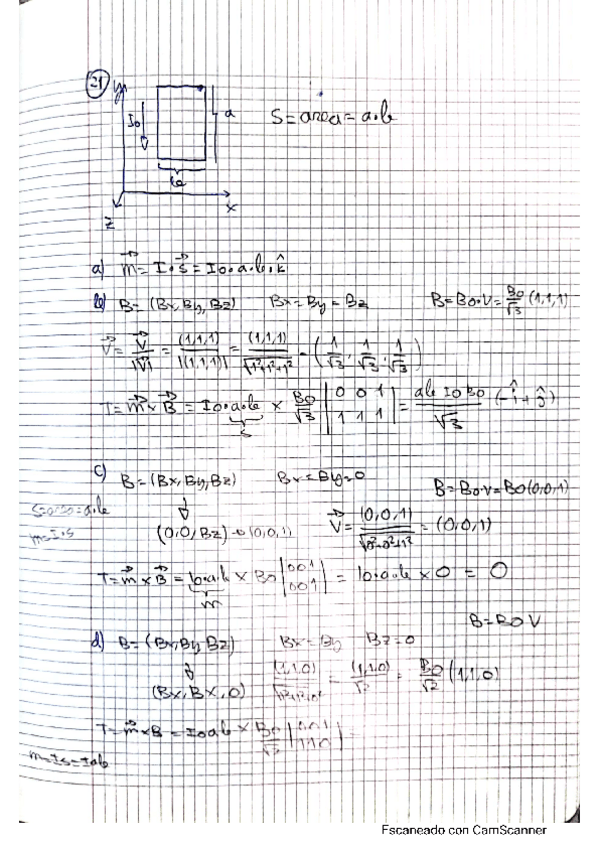 21
y
I₀
a
S = area = a·b
b
x
z
a) m⃗ = I·s⃗ = I₀·a·b·k̂
b) B = (Bx, By, Bz) Bx = By = Bz B = B₀·V = B₀/√3 (1,1,1)
V⃗ = V⃗/|V| = (1,1,1)/|(1,1,1)| = (1,1,1)/√1²+1²+1² = (1/√3, 1/√3, 1/√3)
T = m⃗ × B⃗ = I₀·a·b × B₀/√3 |0 0 1 / 1 1 1| = ab I₀ B₀/√3 (-î + ĵ)
s
c) B = (Bx, By, Bz) Bx = By = 0 B = B₀·V = B₀(0,0,1)
S = area = a·b
m = I·s
(0,0,Bz) → (0,0,1) V⃗ = (0,0,1)/√0²+0²+1² = (0,0,1)
T = m⃗ × B⃗ = I₀·a·b × B₀ |0 0 1 / 0 0 1| = I₀·a·b × 0 = 0
m
B = B₀ V
d) B = (Bx, By, Bz) Bx = By Bz = 0
(Bx, Bx, 0) (1,1,0)/√1²+1²+0² = (1,1,0)/√2 = B₀/√2 (1,1,0)
T = m⃗ × B = I₀ab × B₀/√2 |0 0 1 / 1 1 0| =
m = Is = Iab
Escaneado con CamScanner